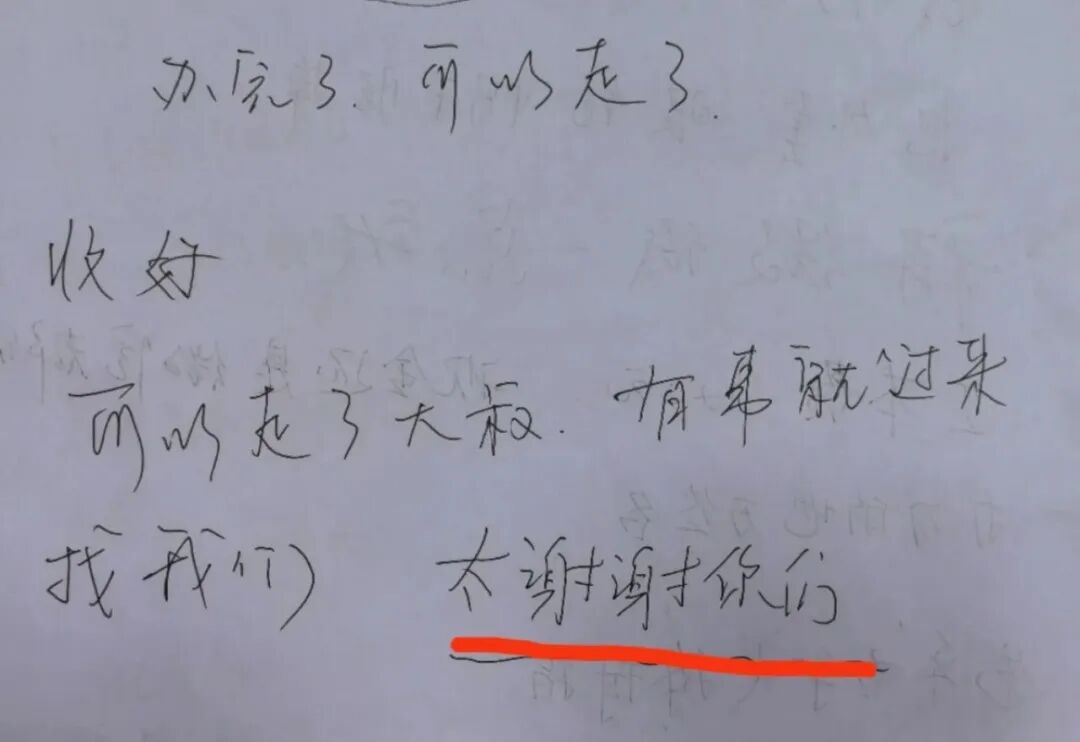 办完了.可以走了.
收好
可以走了大叔.有事就过来
找我们 太谢谢你们